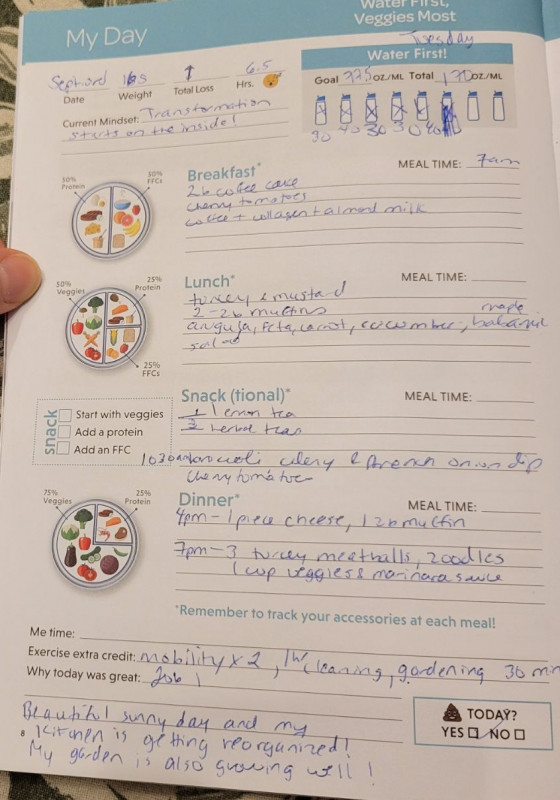 Water First,
Veggies Most
My Day
Tuesday
Water First!
Goal OZ./ML Total 170 OZ./ML
30 40 30 30 40
Date
165 Weight
↑ Total Loss
6.5 Hrs.
Current Mindset: Transformation
starts on the inside!
50% Protein
50% FFCs
Breakfast*
MEAL TIME: 7am
2b coffee cake
cherry tomatoes
coffee + collagen + almond milk
50% Veggies
25% Protein
25% FFCs
Lunch*
MEAL TIME:
turkey & mustard
2-2b muffins
arugula, feta, carrot, cucumber, maple balsamic
salad
snack
Start with veggies
Add a protein
Add an FFC
Snack (tional)*
MEAL TIME:
1 lemon tea
3 herbal teas
1030am broccoli celery & french onion dip
cherry tomatoes
75% Veggies
25% Protein
Dinner*
MEAL TIME:
4pm - 1 piece cheese, 1 2b muffin
7pm - 3 turkey meatballs, zoodles
1 cup veggies & marinara sauce
*Remember to track your accessories at each meal!
Me time:
Exercise extra credit: mobility x 2, 1hr cleaning, gardening 30 min
Why today was great: Job 1
Beautiful sunny day and my
kitchen is getting reorganized!
My garden is also growing well!
TODAY?
YES NO
8